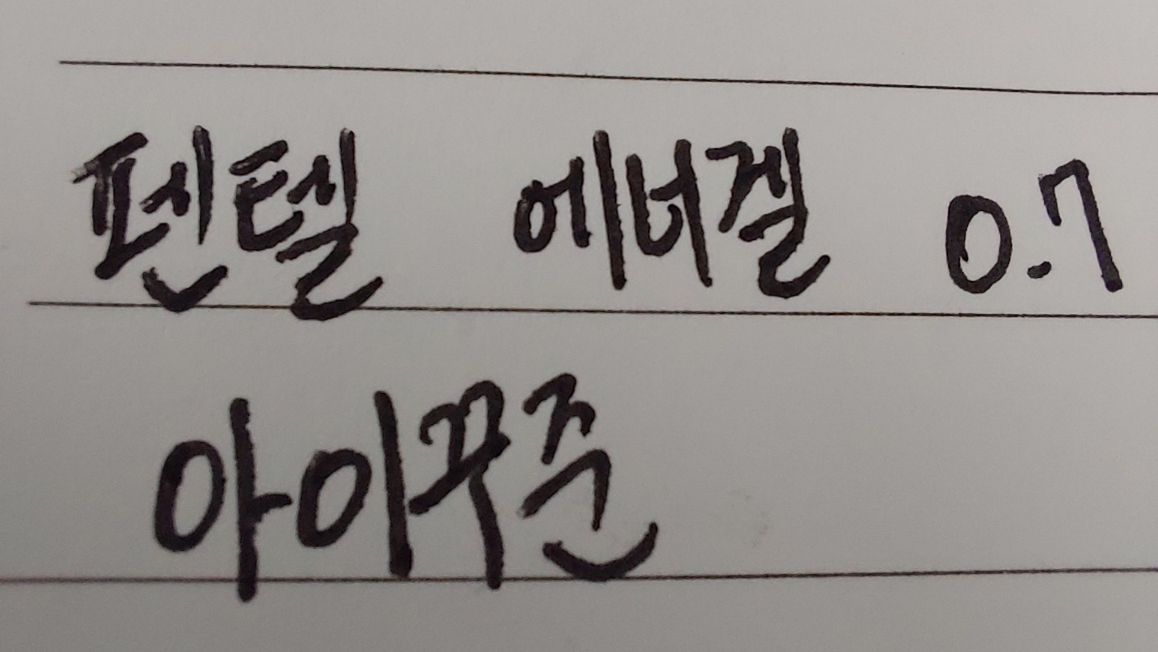 펜텔 에너겔 0.7
아이꾸준